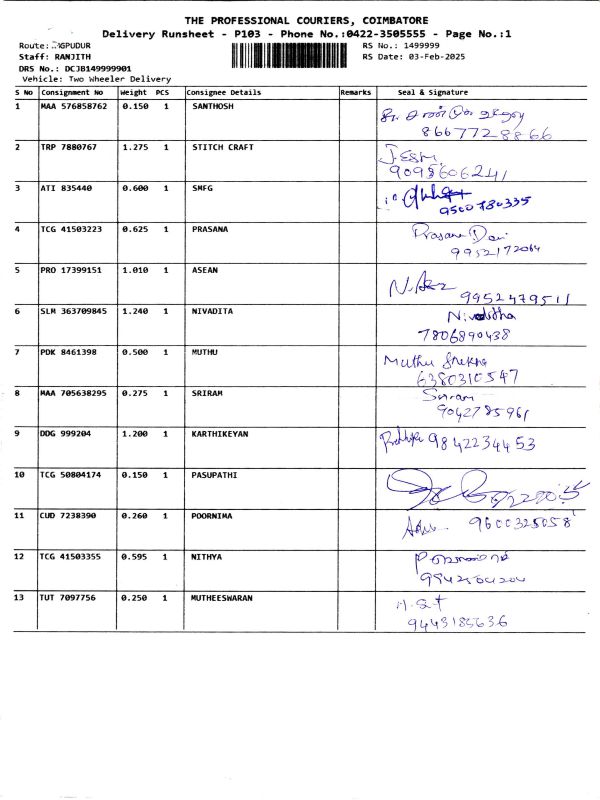 THE PROFESSIONAL COURIERS, COIMBATORE
Delivery Runsheet - P103 - Phone No.:0422-3505555 - Page No.:1
Route: GPUDUR
RS No.: 1499999
Staff: RANJITH
RS Date: 03-Feb-2025
DRS No.: DCJB149999901
Vehicle: Two Wheeler Delivery
S No Consignment No Weight PCS Consignee Details Remarks Seal & Signature
1 MAA 576858762 0.150 1 SANTHOSH
8667728866
2 TRP 7880767 1.275 1 STITCH CRAFT
9095606241
3 ATI 835440 0.600 1 SMFG
9500780335
4 TCG 41503223 0.625 1 PRASANA Prasana Devi
9952172064
5 PRO 17399151 1.010 1 ASEAN
9952479511
6 SLM 363709845 1.240 1 NIVADITA Nivaditha
7806890438
7 PDK 8461398 0.500 1 MUTHU Muthu
6380310547
8 MAA 705638295 0.275 1 SRIRAM Sriram
9042785961
9 DDG 999204 1.200 1 KARTHIKEYAN 9842234453
10 TCG 50804174 0.150 1 PASUPATHI
11 CUD 7238390 0.260 1 POORNIMA 9600325058
12 TCG 41503355 0.595 1 NITHYA
13 TUT 7097756 0.250 1 MUTHEESWARAN
9443185636